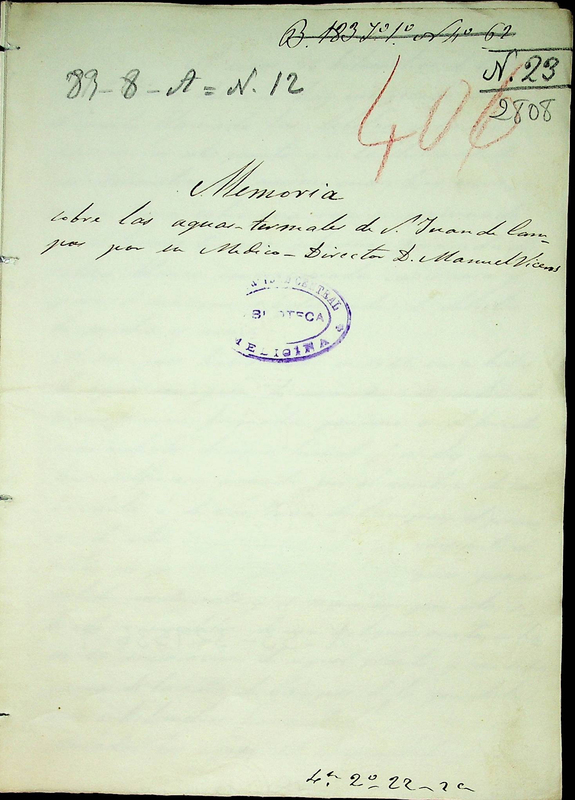 B. 183 Jº 1º Nº 4º 62
N. 23
89-8-A=N. 12
2808
406
Memoria
sobre las aguas termales de S. Juan de Cam-
pos por su Medico-Director D. Manuel Vicens
CENTRAL
BIBLIOTECA
MEDICINA
4ª 2º 22-2ª